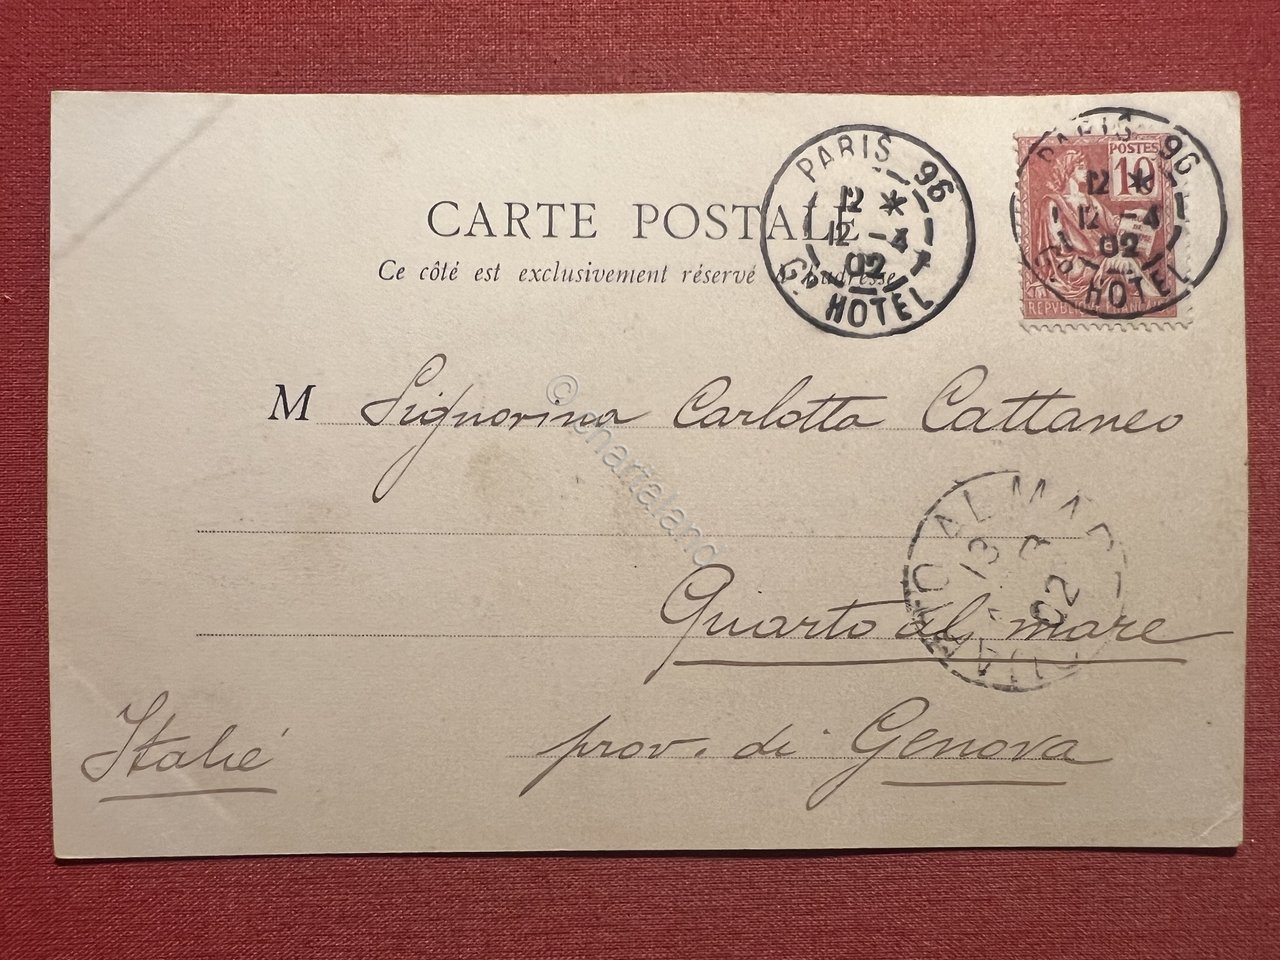 CARTE POSTALE
Ce côté est exclusivement réservé à l'adresse
PARIS 96
12 *
12 -4
02
Gd HOTEL
PARIS 96
12 *
12 -4
02
Gd HOTEL
POSTES
10
REPVBLIQVE FRANÇAISE
M Signorina Carlotta Cattaneo
© chartaland
AL MAR
13
02
Quarto al mare
prov. di Genova
Italié